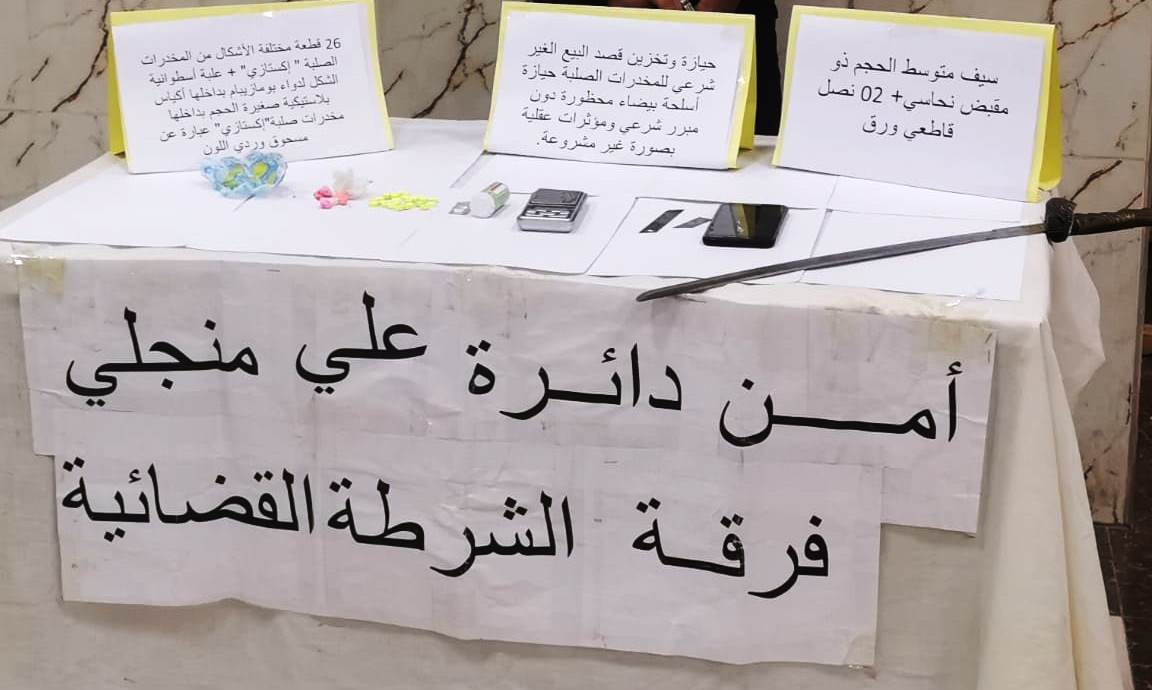 سيف متوسط الحجم ذو
مقبض نحاسي+ 02 نصل
قاطعي ورق
حيازة وتخزين قصد البيع الغير
شرعي للمخدرات الصلبة حيازة
أسلحة بيضاء محظورة دون
مبرر شرعي ومؤثرات عقلية
بصورة غير مشروعة.
26 قطعة مختلفة الأشكال من المخدرات
الصلبة " إكستازي" + علبة أسطوانية
الشكل لدواء بومازيبام بداخلها أكياس
بلاستيكية صغيرة الحجم بداخلها
مخدرات صلبة"إكستازي" عبارة عن
مسحوق وردي اللون
أمـــن دائـرة علي منجلي
فرقـة الشرطة القضائية